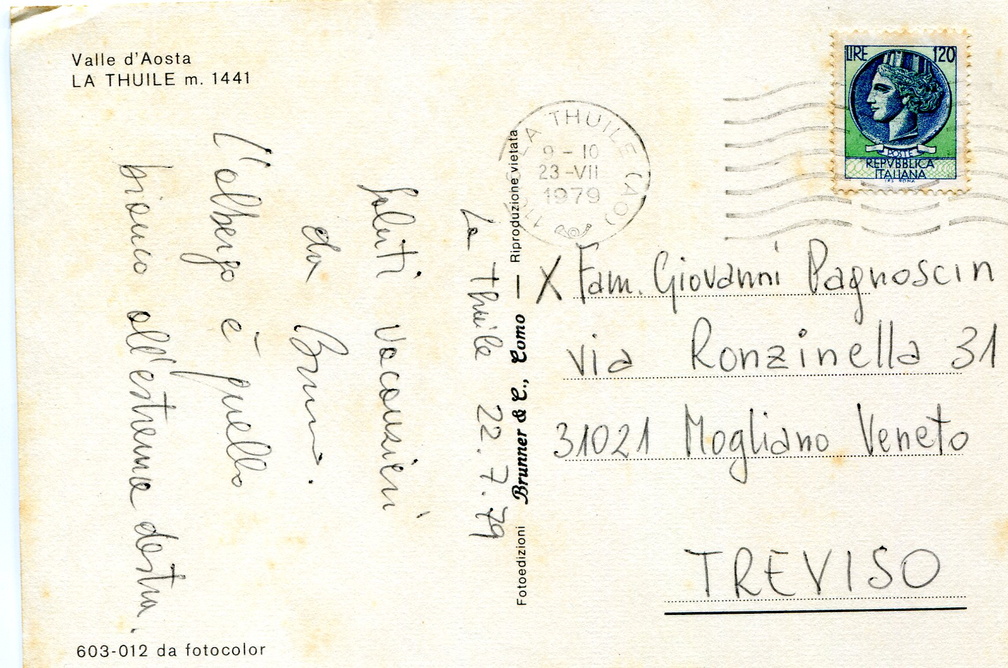 Valle d'Aosta
LA THUILE m. 1441
La Thuile 22.7.79
Saluti vacanzieri
da Bruno.
L'albergo è quello
bianco all'estrema destra.
603-012 da fotocolor
Fotoedizioni Brunner & C., Como — Riproduzione vietata
LA THUILE (AO)
9-10
23-VII
1979
LIRE 120
POSTE
REPVBBLICA
ITALIANA
X Fam. Giovanni Pagnoscin
via Ronzinella 31
31021 Mogliano Veneto
TREVISO